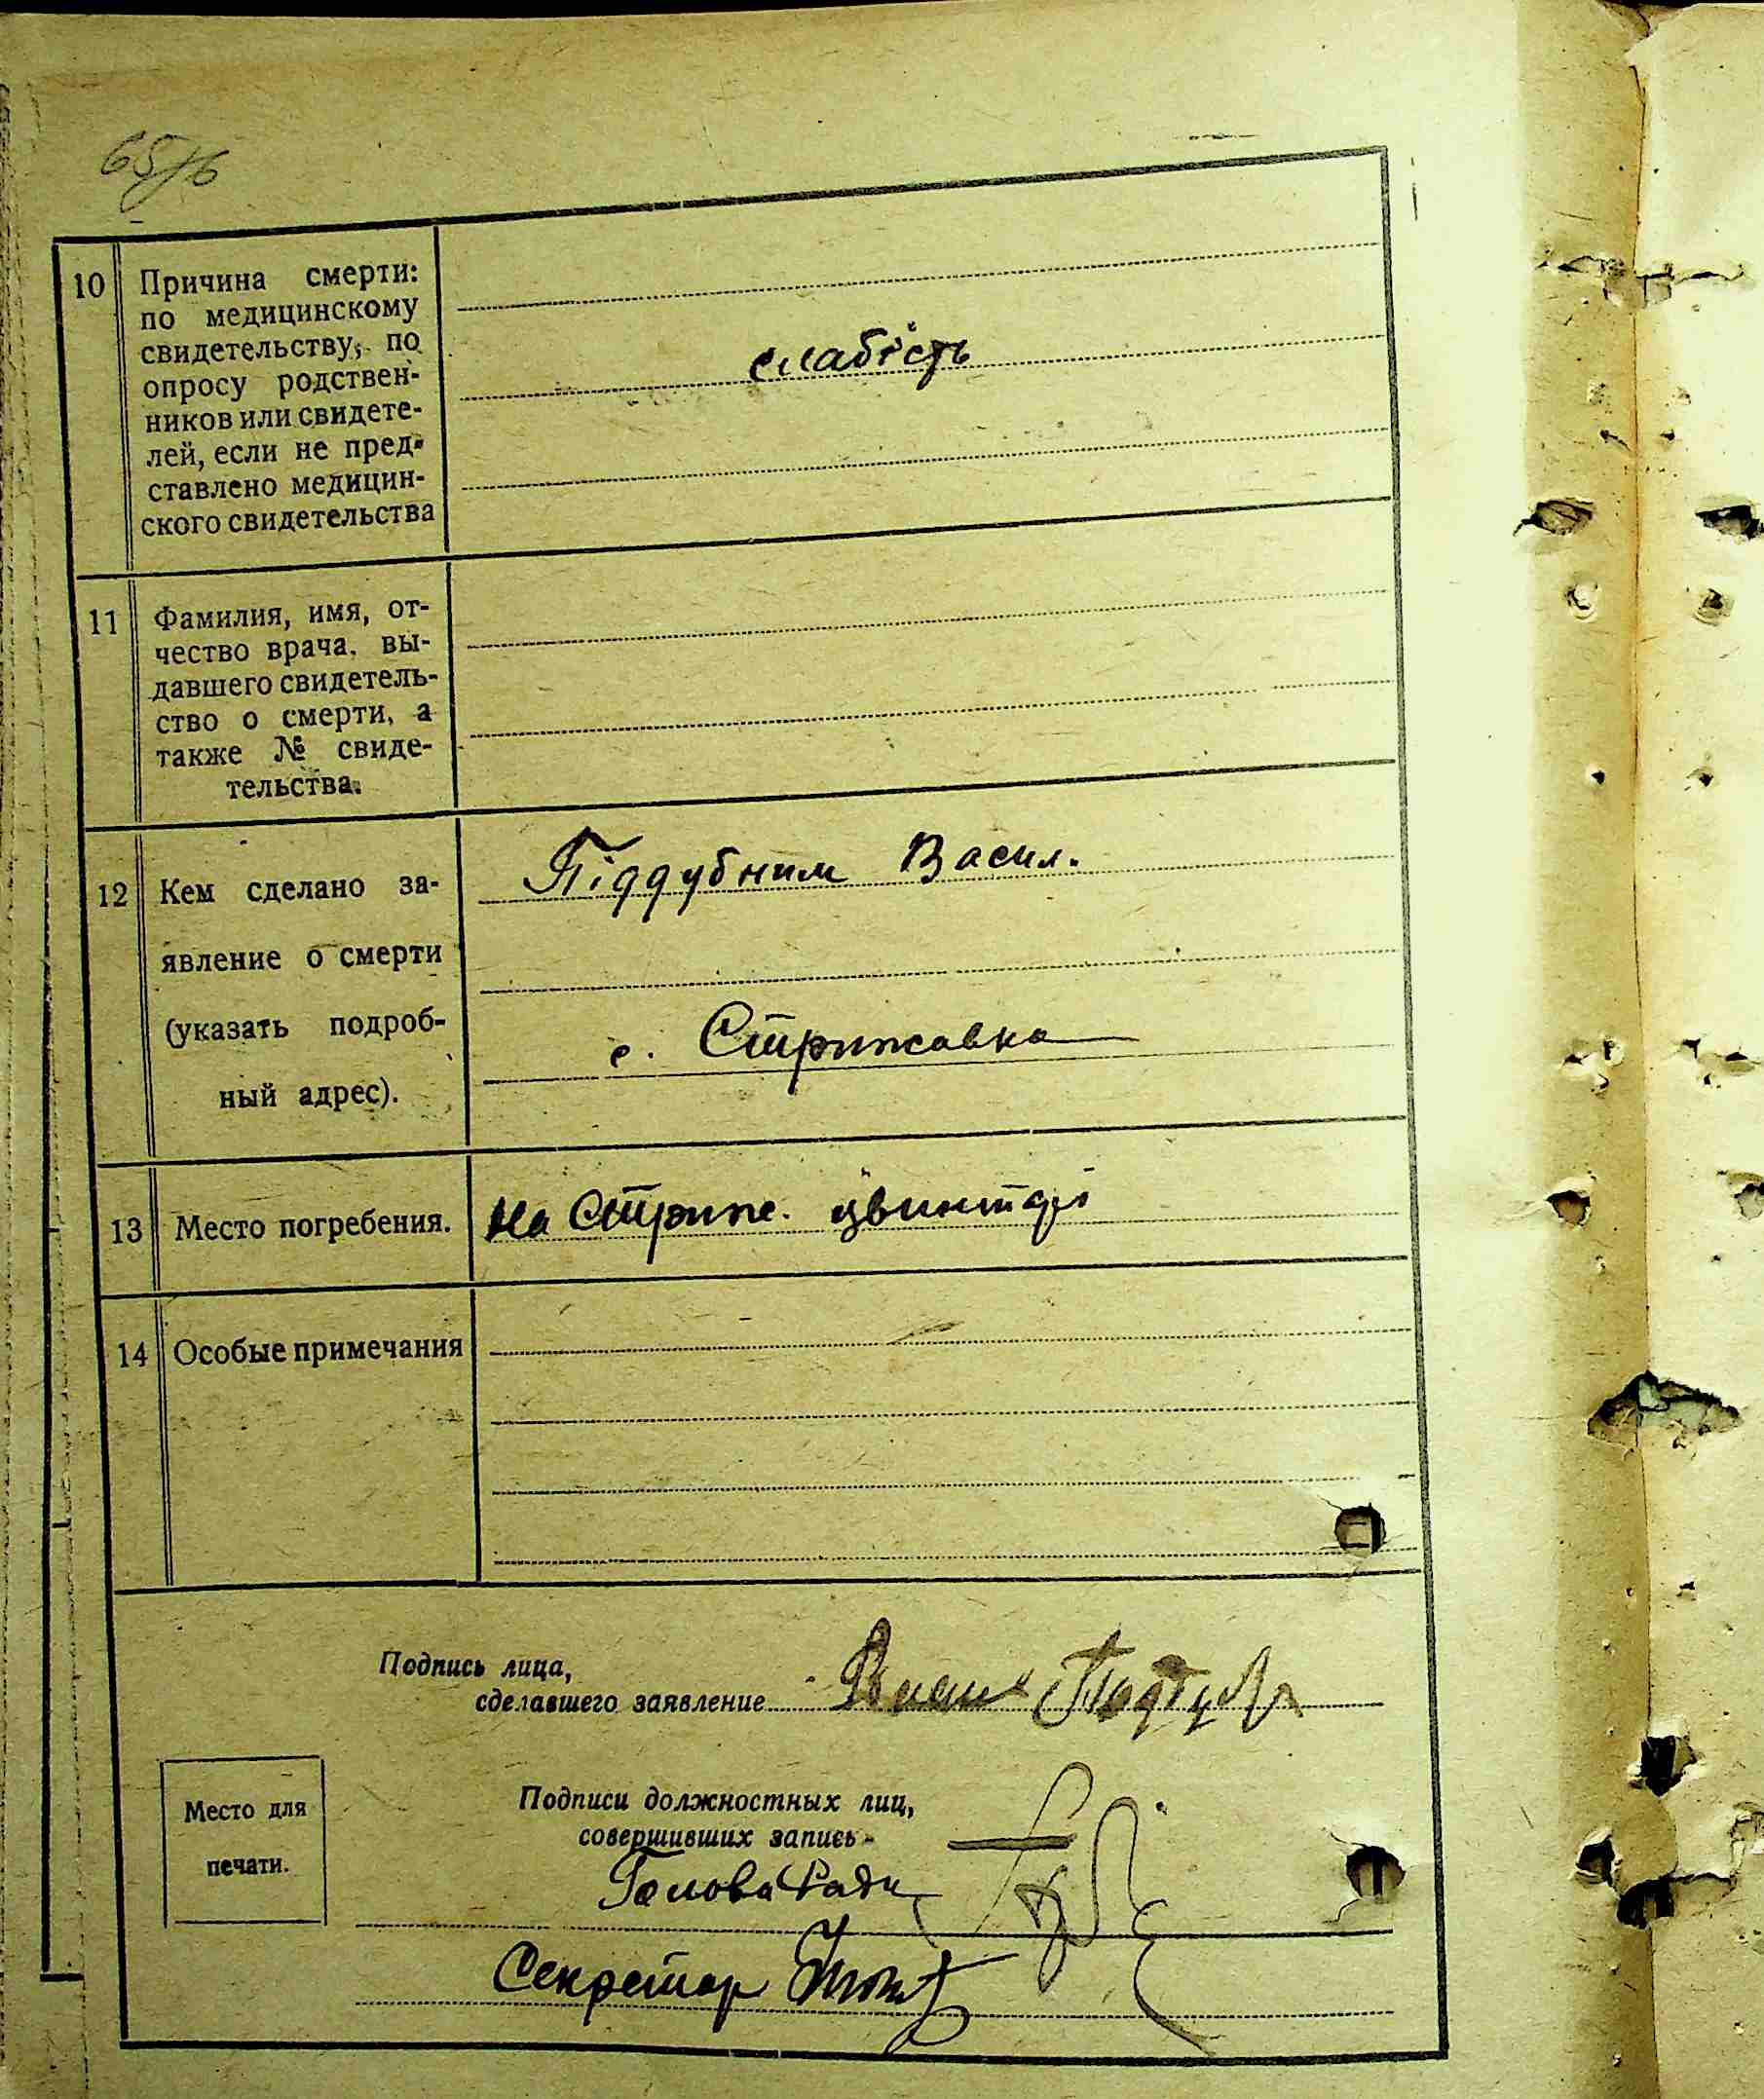 10 Причина смерти:
по медицинскому
свидетельству, по
опросу родствен-
ников или свидете-
лей, если не пред-
ставлено медицин-
ского свидетельства
слабість
11 Фамилия, имя, от-
чество врача, вы-
давшего свидетель-
ство о смерти, а
также № свиде-
тельства.
12 Кем сделано за-
явление о смерти
(указать подроб-
ный адрес).
Піддубним Васил.
с. Стрижавка
13 Место погребения. На Стриж. цвинтарі
14 Особые примечания
Подпись лица,
сделавшего заявление
Подписи должностных лиц,
совершивших запись
Голова Ради
Секретар
Место для
печати.